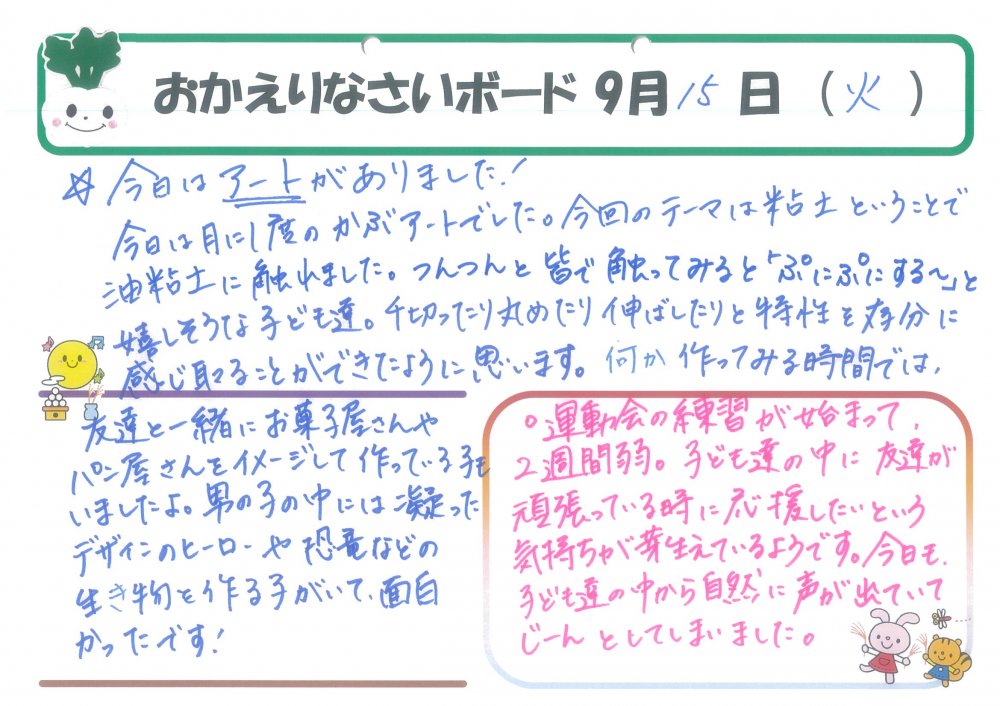 おかえりなさいボード 9月15日(火)
☆今日はアートがありました!
今日は月に1度のかぶアートでした。今回のテーマは粘土ということで
油粘土に触れました。つんつんと皆で触ってみると「ぷにぷにする〜」と
嬉しそうな子ども達。千切ったり丸めたり伸ばしたりと特性を存分に
感じ取ることができたように思います。何か作ってみる時間では、
友達と一緒にお菓子屋さんや
パン屋さんをイメージして作っている子も
いましたよ。男の子の中には凝った
デザインのヒーローや恐竜などの
生き物を作る子がいて、面白
かったです!
○運動会の練習が始まって、
2週間弱。子ども達の中に友達が
頑張っている時に応援したいという
気持ちが芽生えているようです。今日も、
子ども達の中から自然に声が出ていて
じーんとしてしまいました。